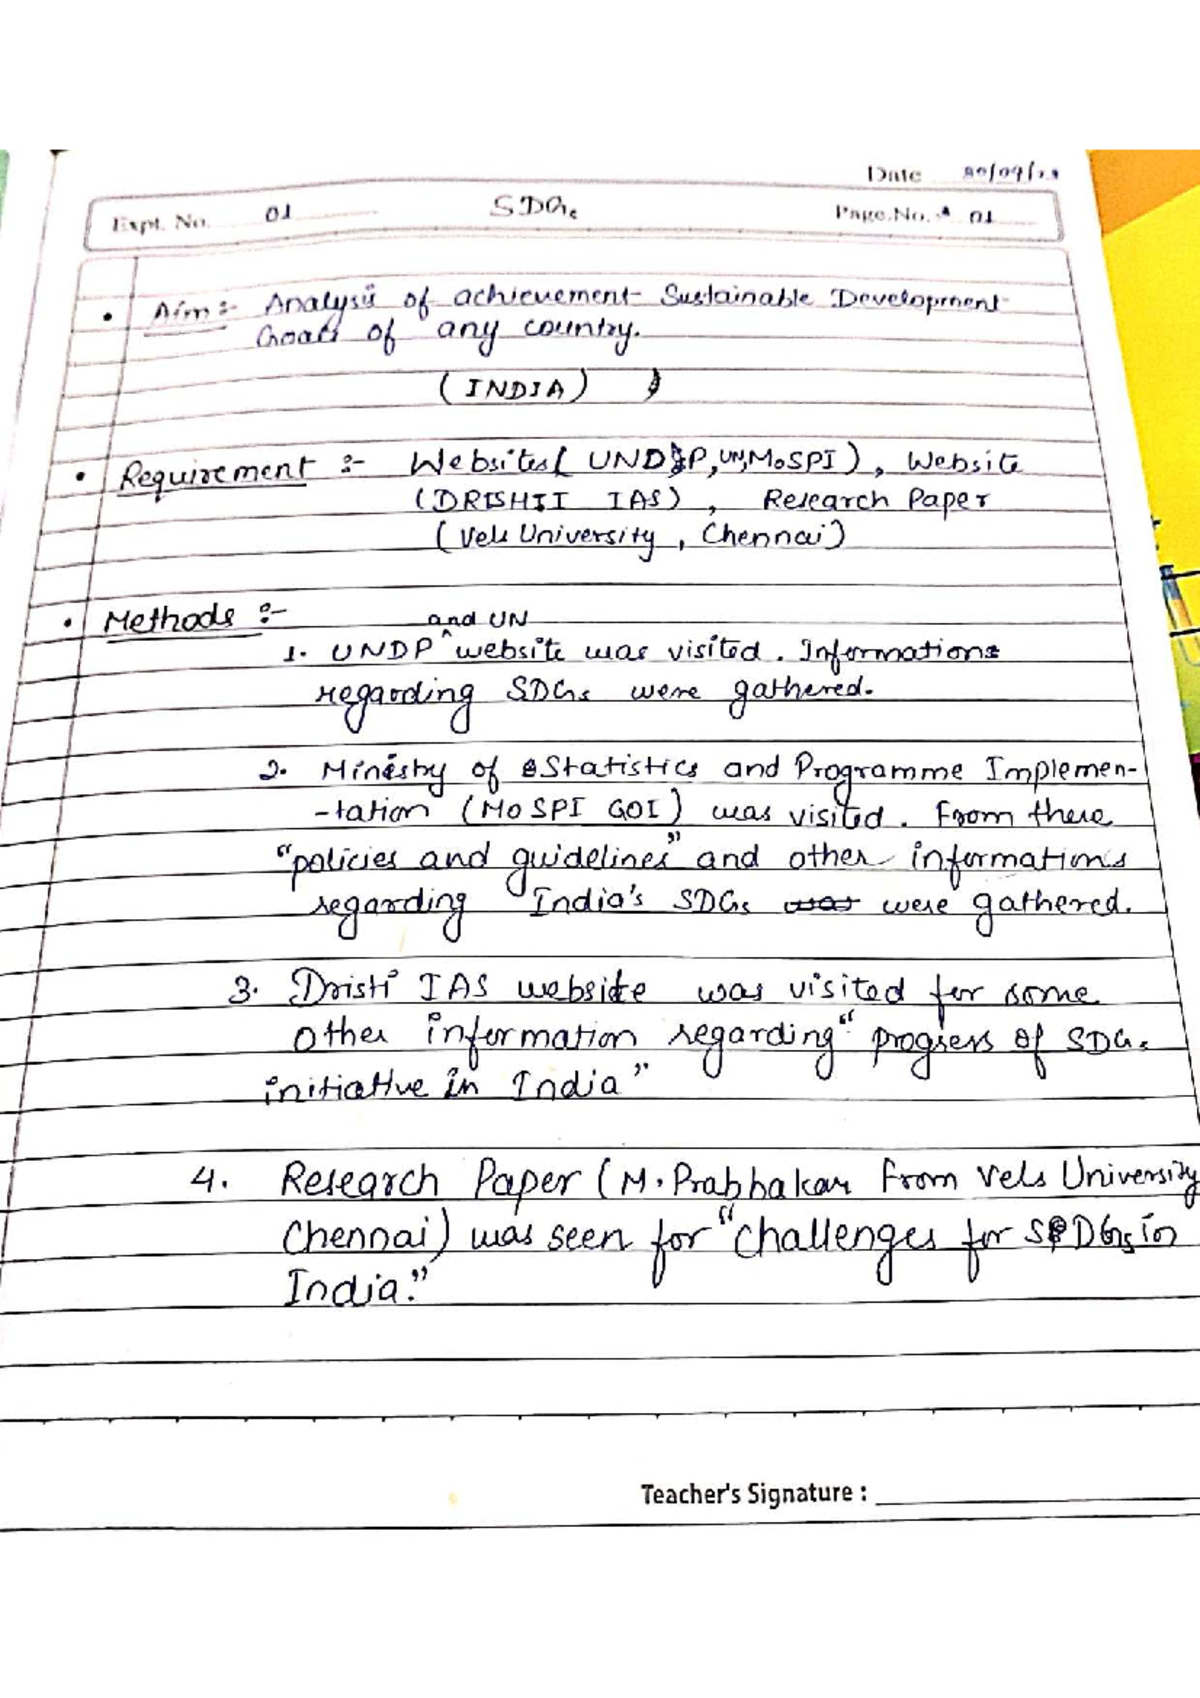 Date
Expt. No. 01 SDGs Page No. 01
• Aim :- Analysis of achievement Sustainable Development
Goals of any country.
(INDIA)
• Requirement :- Websites( UNDP, UN, MoSPI ) , Website
(DRISHTI IAS) , Research Paper
(Vels University , Chennai)
• Methods :-
and UN
1. UNDP ^ website was visited. Informations
regarding SDGs were gathered.
2. Ministry of Statistics and Programme Implemen-
-tation (MoSPI GOI) was visited. From there
"policies and guidelines" and other informations
regarding India's SDGs was were gathered.
3. Dristi IAS website was visited for some
other information regarding "progress of SDGs
initiative in India"
4. Research Paper (M. Prabhakar From Vels University
Chennai) was seen for "challenges for SDGs in
India."
Teacher's Signature :